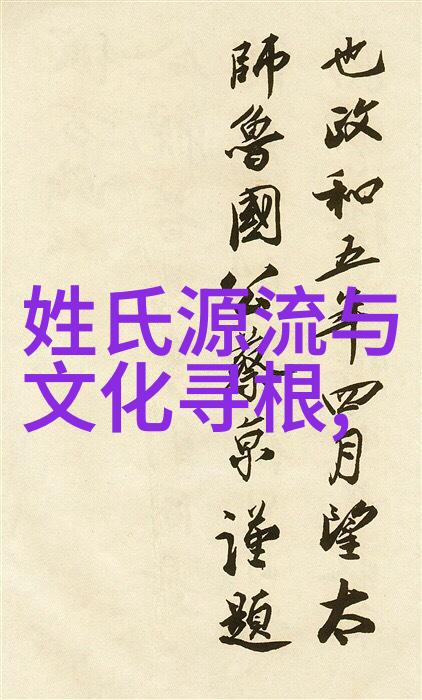 姓氏源流与
文化寻根,
也政和五年四月望太
師魯國公蔡京謹題